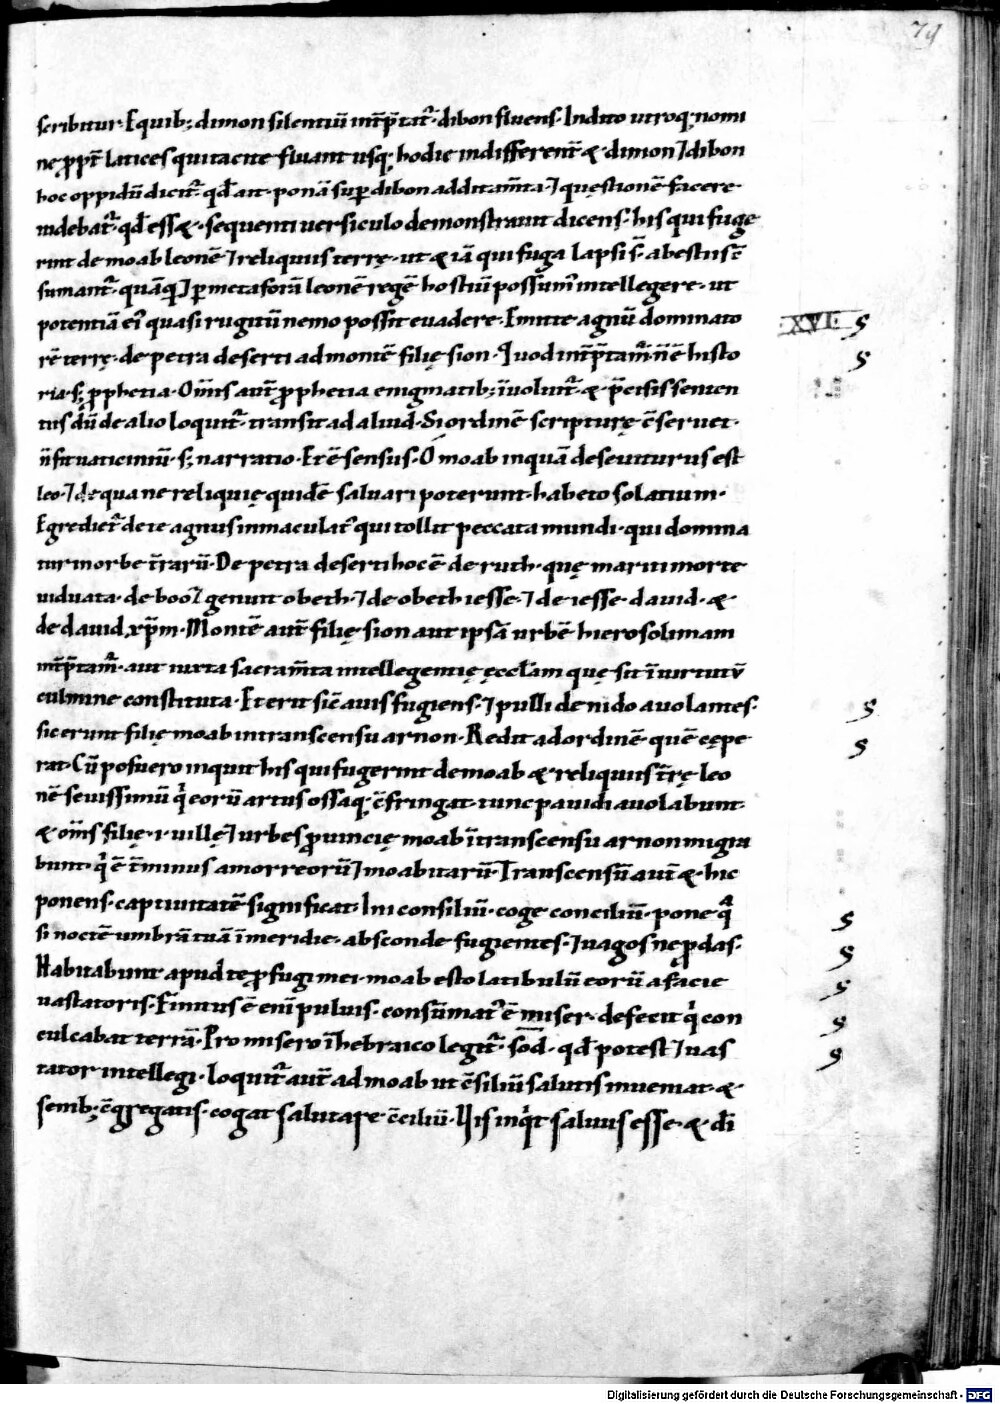 79
scribitur· Equib; dimon silentiū int̄p̄tat᷒· dibon fluens· Indito utroq; nomi
ne p̱pt̄ latices qui tacite fluant usq; hodie indifferent̄ & dimon ⁊ dibon
hoc oppidū dicit᷒· qđ ait· ponā suꝑ dibon additam̄ta· ⁊ quęstionē facere·
uidebat᷒· qđ ess&· sequenti uersiculo demonstrauit dicens· his qui fuge
rint de moab leonē ⁊ reliquiis terrę· ut & iā qui fuga lapsi s̄· a bestiis c̄
sumant᷒· quāq̄ ⁊ ꝑ metaforā leonē regē hostiū possum᷒ intellegere· ut
potentiā ei᷒ quasi rugitū nemo possit euadere· Emitte agnū dominato
.XVI. s
rē terrę· de petra deserti ad montē filię sion· Quod int̄p̄tam᷒· n̄ ē histo
s
ria· s; ꝓphetia· Om̄is aut̄ ꝓphetia enigmatib; īuoluit᷒· & p̄cisis senten
tiis dū de alio loquit᷒· transit ad aliud· Si ordinē scripturę c̄seruet·
n̄ sit uaticiniū· s; narratio· Et ē sensus· O moab in quā deseuiturus est
leo· ⁊ de qua ne reliquię quidē saluari poterunt· habeto solatium·
Egrediet᷒ de te agnus inmaculat᷒ qui tollit peccata mundi· qui domina
tur in orbe t̄rarū· De petra deserti hoc ē de ruth· quę mariti morte
uiduata· de booz genuit obeth· ⁊ de obeth iesse· ⁊ de iesse dauid· &
de dauid xp̄m· Montē aut̄ filię sion aut ipsā urbē hierosolimam
int̄p̄tam᷒· aut iuxta sacram̄ta intellegentię ęcclam quę sit ī uirtutū
culmine constituta· Et erit sic̄ auis fugiens· ⁊ pulli de nido auolantes·
s
sic erunt filię moab in transcensu arnon· Redit ad ordinē· quē cępe
s
rat· Cū posuero inquit his qui fugerint de moab & reliquiis t̄rę leo
nē seuissimū q̇ eorū artus ossaq; c̄fringat· tunc pauidi auolabunt·
& om̄s filię· i· uillę ⁊ urbes ꝓuincię moab ī transcensu arnon migra
bunt· q̇ ē t̄minus amorreorū ⁊ moabitarū· Transcensū aut̄ & hic
ponens· captiuitatē significat· Ini consiliū· coge conciliū· pone q̄
s
si noctē umbrā tuā ī meridie· absconde fugientes· ⁊ uagos ne ꝓdas·
s
Habitabunt apud te ꝓfugi mei· moab esto latibulū eorū a facie
s
uastatoris· Finitus ē eni᷒ puluis· consūmat᷒ ē miser· defecit q̇ con
s
culcabat terrā· Pro misero ī hebraico legit᷒· sod· qđ potest ⁊ uas
s
tator intellegi· loquit᷒ aut̄ ad moab ut c̄siliū salutis inueniat· &
semb; c̄gregatis· cogat salutare c̄ciliū· Uis inq̇t saluus esse· & di
Digitalisierung gefördert durch die Deutsche Forschungsgemeinschaft - DFG